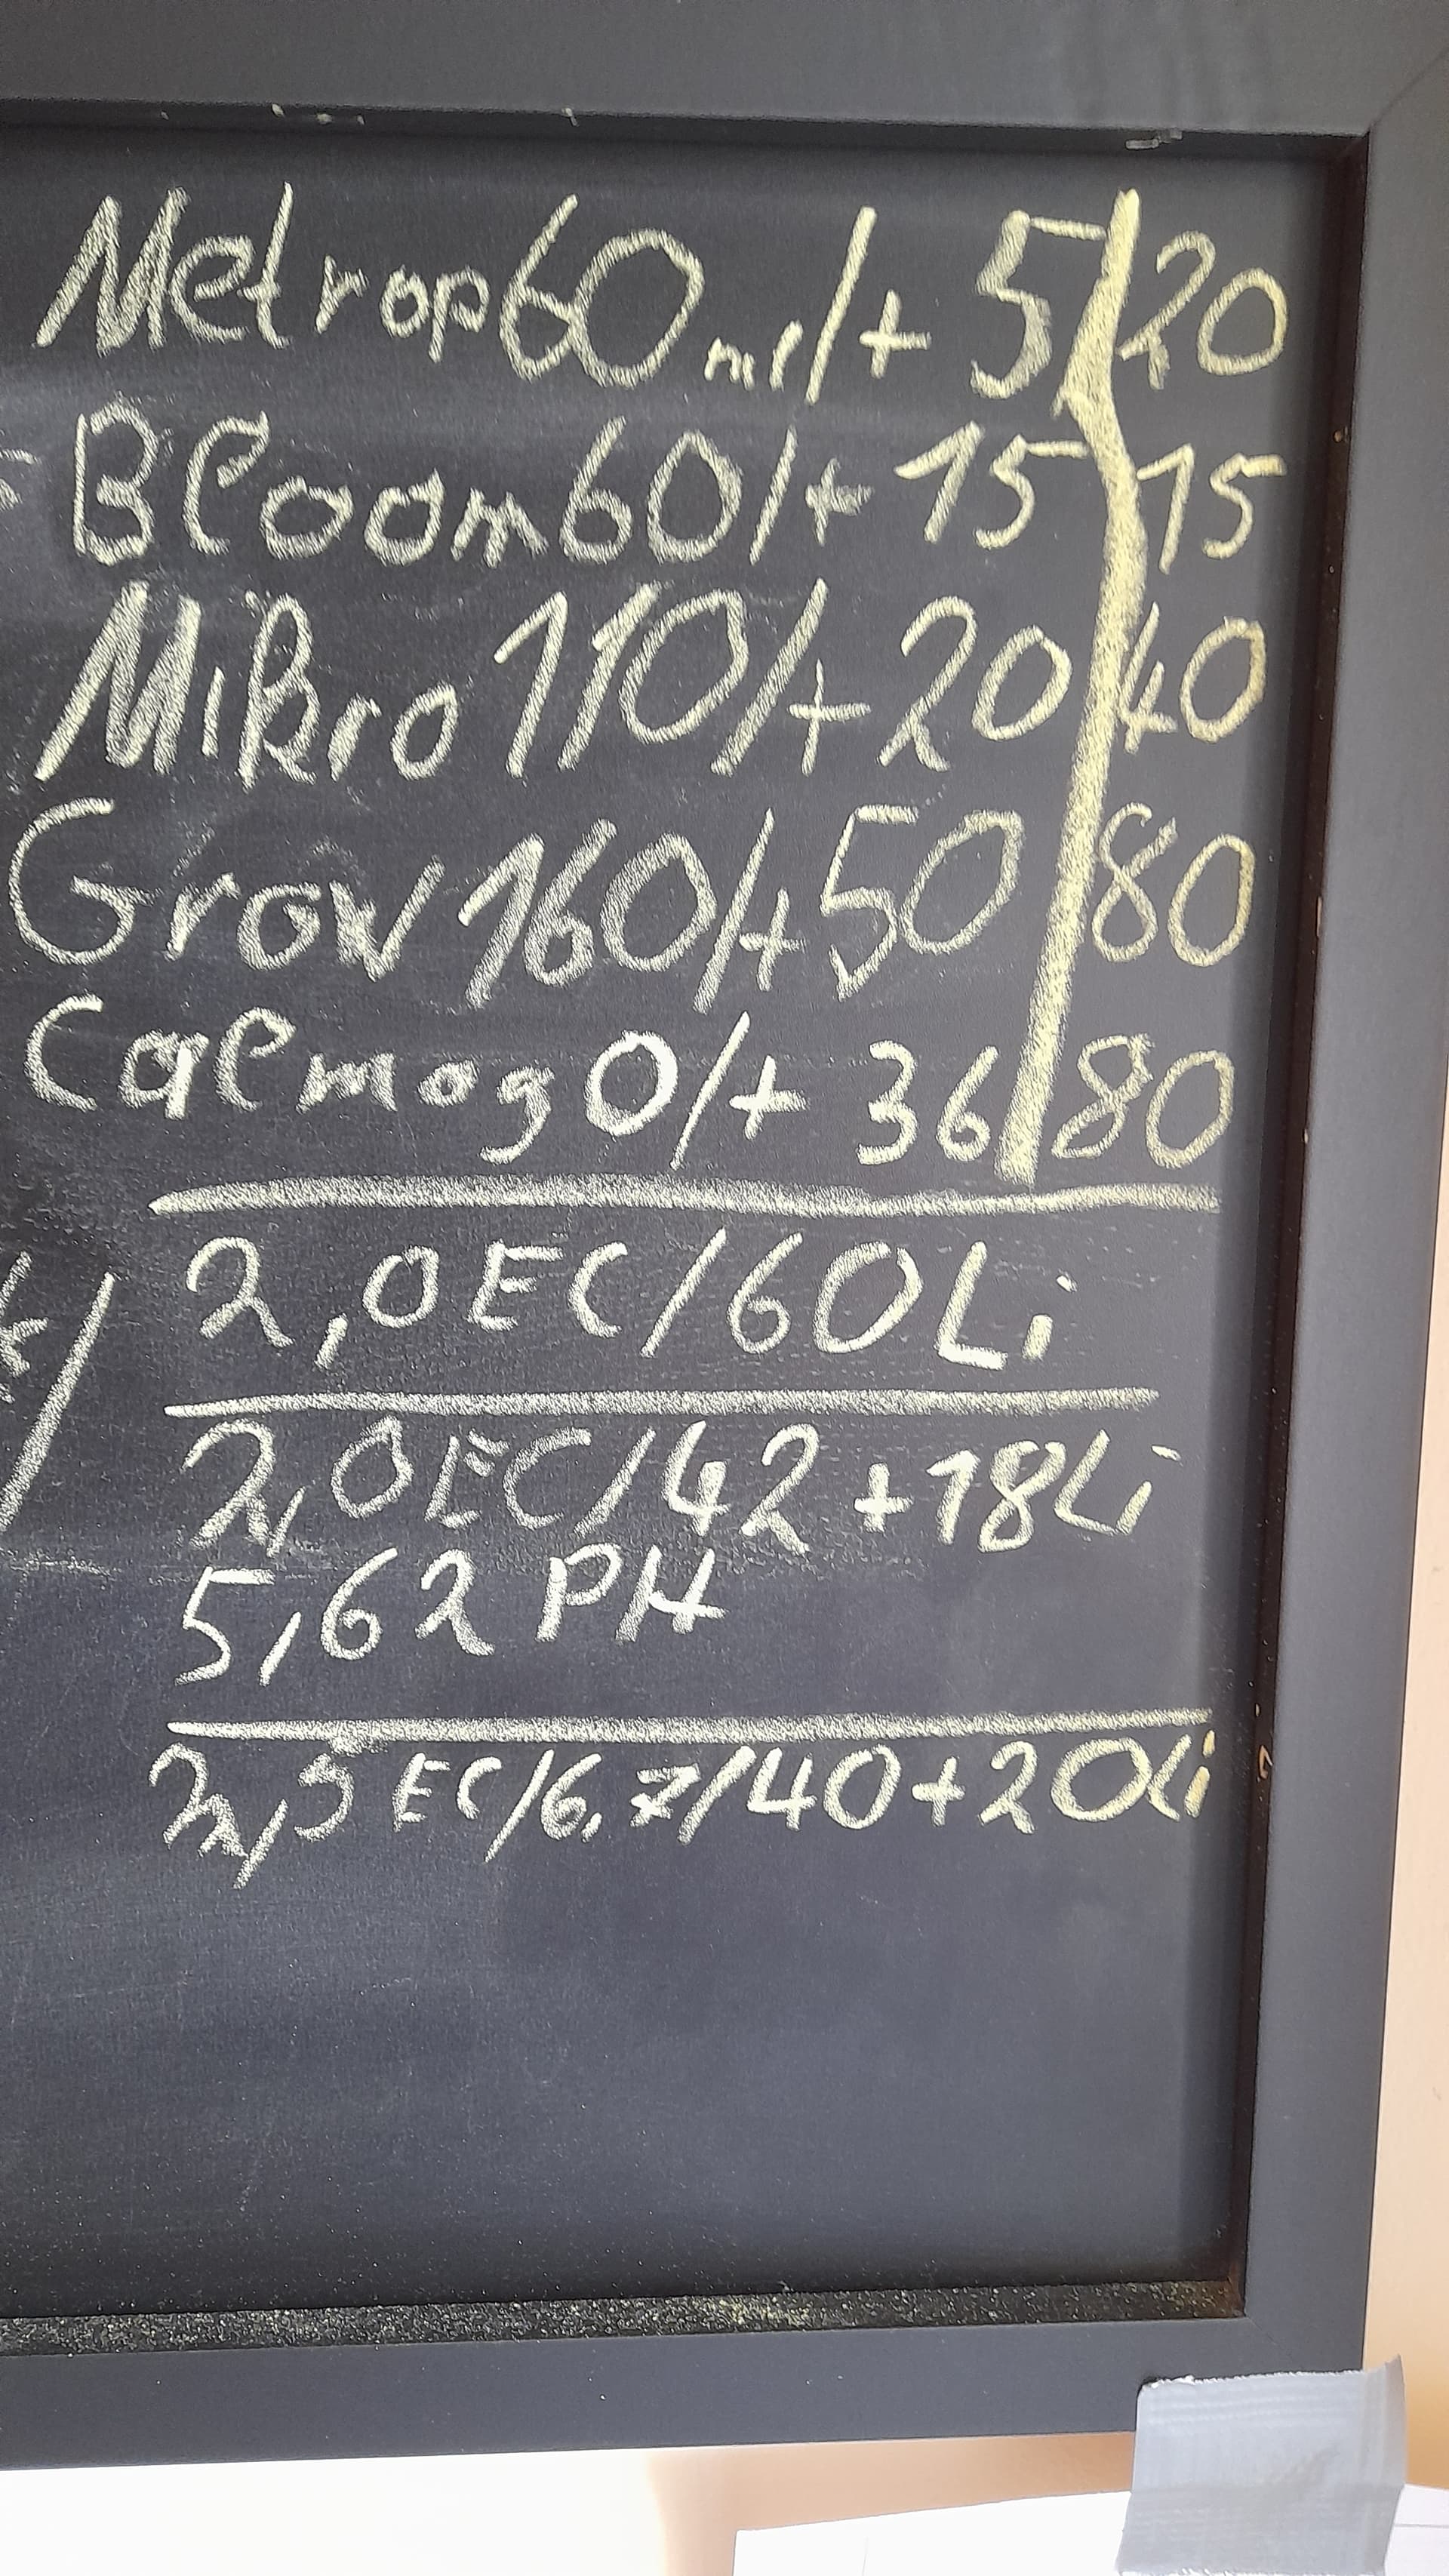 Metrop 60 ml/+ 5 | 20
Bloom 60/+ 15 | 15
Mikro 110/+ 20 | 40
Grow 160/+ 50 | 80
Calmag 0/+ 36 | 80
2,0 EC/60 Li
2,0 EC/42 + 18 Li
5,62 PH
2,5 EC/6,7/40+20Li